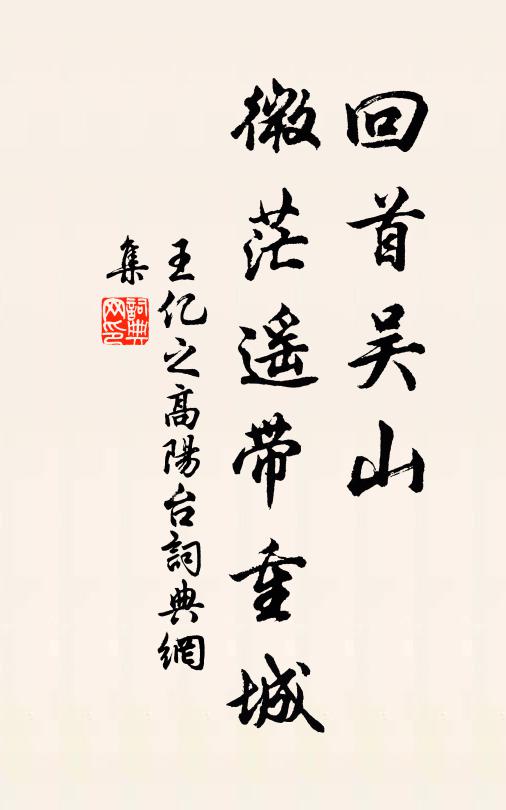 回首吴山
微茫遥带重城
王亿之高陽台詞典網
集
詞典网印